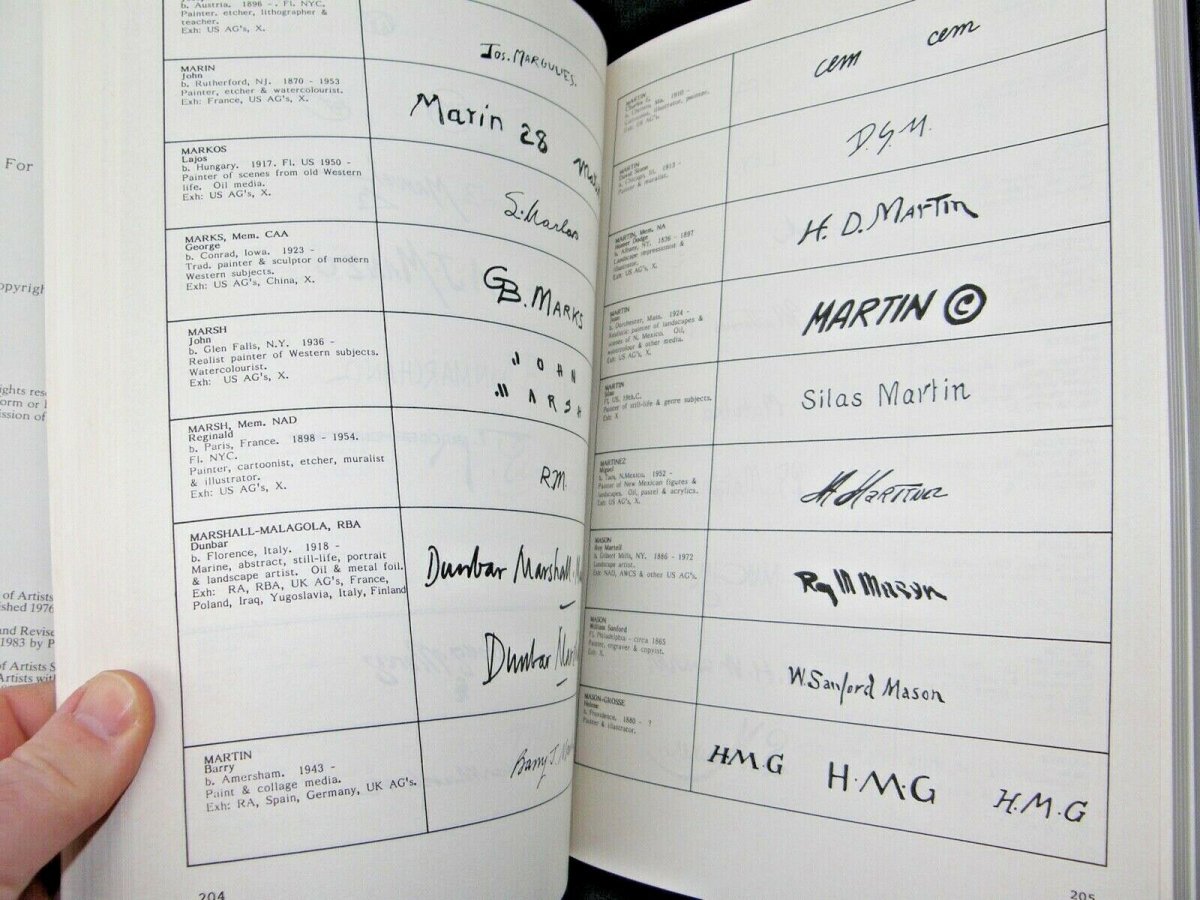 For
opyrigh
ights res
orm or
ission of
of Artists
shed 1976
and Revise
1983 by P
of Artists S
Artists wit
b. Austria. 1896 -. Fl. NYC.
Painter, etcher, lithographer &
teacher.
Exh: US AG's, X.
Jos. MARGULIES.
MARIN
John
b. Rutherford, NJ. 1870 - 1953
Painter, etcher & watercolourist.
Exh: France, US AG's, X.
Marin 28
MARKOS
Lajos
b. Hungary. 1917. Fl. US 1950 -
Painter of scenes from old Western
life. Oil media.
Exh: US AG's, X.
MARKS, Mem. CAA
George
b. Conrad, Iowa. 1923 -
Trad. painter & sculptor of modern
Western subjects.
Exh: US AG's, China, X.
GB. MARKS
MARSH
John
b. Glen Falls, N.Y. 1936 -
Realist painter of Western subjects.
Watercolourist.
Exh: US AG's, X.
MARSH, Mem. NAD
Reginald
b. Paris, France. 1898 - 1954.
Fl. NYC.
Painter, cartoonist, etcher, muralist
& illustrator.
Exh: US AG's, X.
R.M.
MARSHALL-MALAGOLA, RBA
Dunbar
b. Florence, Italy. 1918 -
Marine, abstract, still-life, portrait
& landscape artist. Oil & metal foil.
Exh: RA, RBA, UK AG's, France,
Poland, Iraq, Yugoslavia, Italy, Finland
Dunbar Marshall
Dunbar Mar
MARTIN
Barry
b. Amersham. 1943 -
Paint & collage media.
Exh: RA, Spain, Germany, UK AG's.
Barry J.
204
MARTIN
cartoonist, illustrator, painter.
Exh: US AG's.
cem cem
MARTIN
b. Chicago, Ill. 1913 -
Painter & muralist.
D.G.M.
MARTIN, Mem. NA
Homer Dodge
b. Albany, NY. 1836 - 1897
Landscape impressionist &
illustrator.
Exh: US AG's, X.
H. D. MARTIN
MARTIN
b. Dorchester, Mass. 1924 -
Realistic painter of landscapes &
scenes of N. Mexico. Oil,
watercolour & other media.
Exh: US AG's, X.
MARTIN ©
MARTIN
Silas
Fl. US. 19th.C.
Painter of still-life & genre subjects.
Exh: X
Silas Martin
MARTINEZ
Miguel
b. Taos, N.Mexico. 1952 -
Painter of New Mexican figures &
landscapes. Oil, pastel & acrylics.
Exh: US AG's, X.
M MARTINEZ
MASON
Roy Martell
b. Gilbert Mills, NY. 1886 - 1972
Landscape artist.
Exh: NAD, AWCS & other US AG's.
Roy M Mason
MASON
William Sanford
Fl. Philadelphia - circa 1865
Painter, engraver & copyist.
Exh: X.
W. Sanford Mason
MASON-GROSSE
Helene
b. Providence. 1880 - ?
Painter & illustrator.
H.M.G H.M.G H.M.G
205